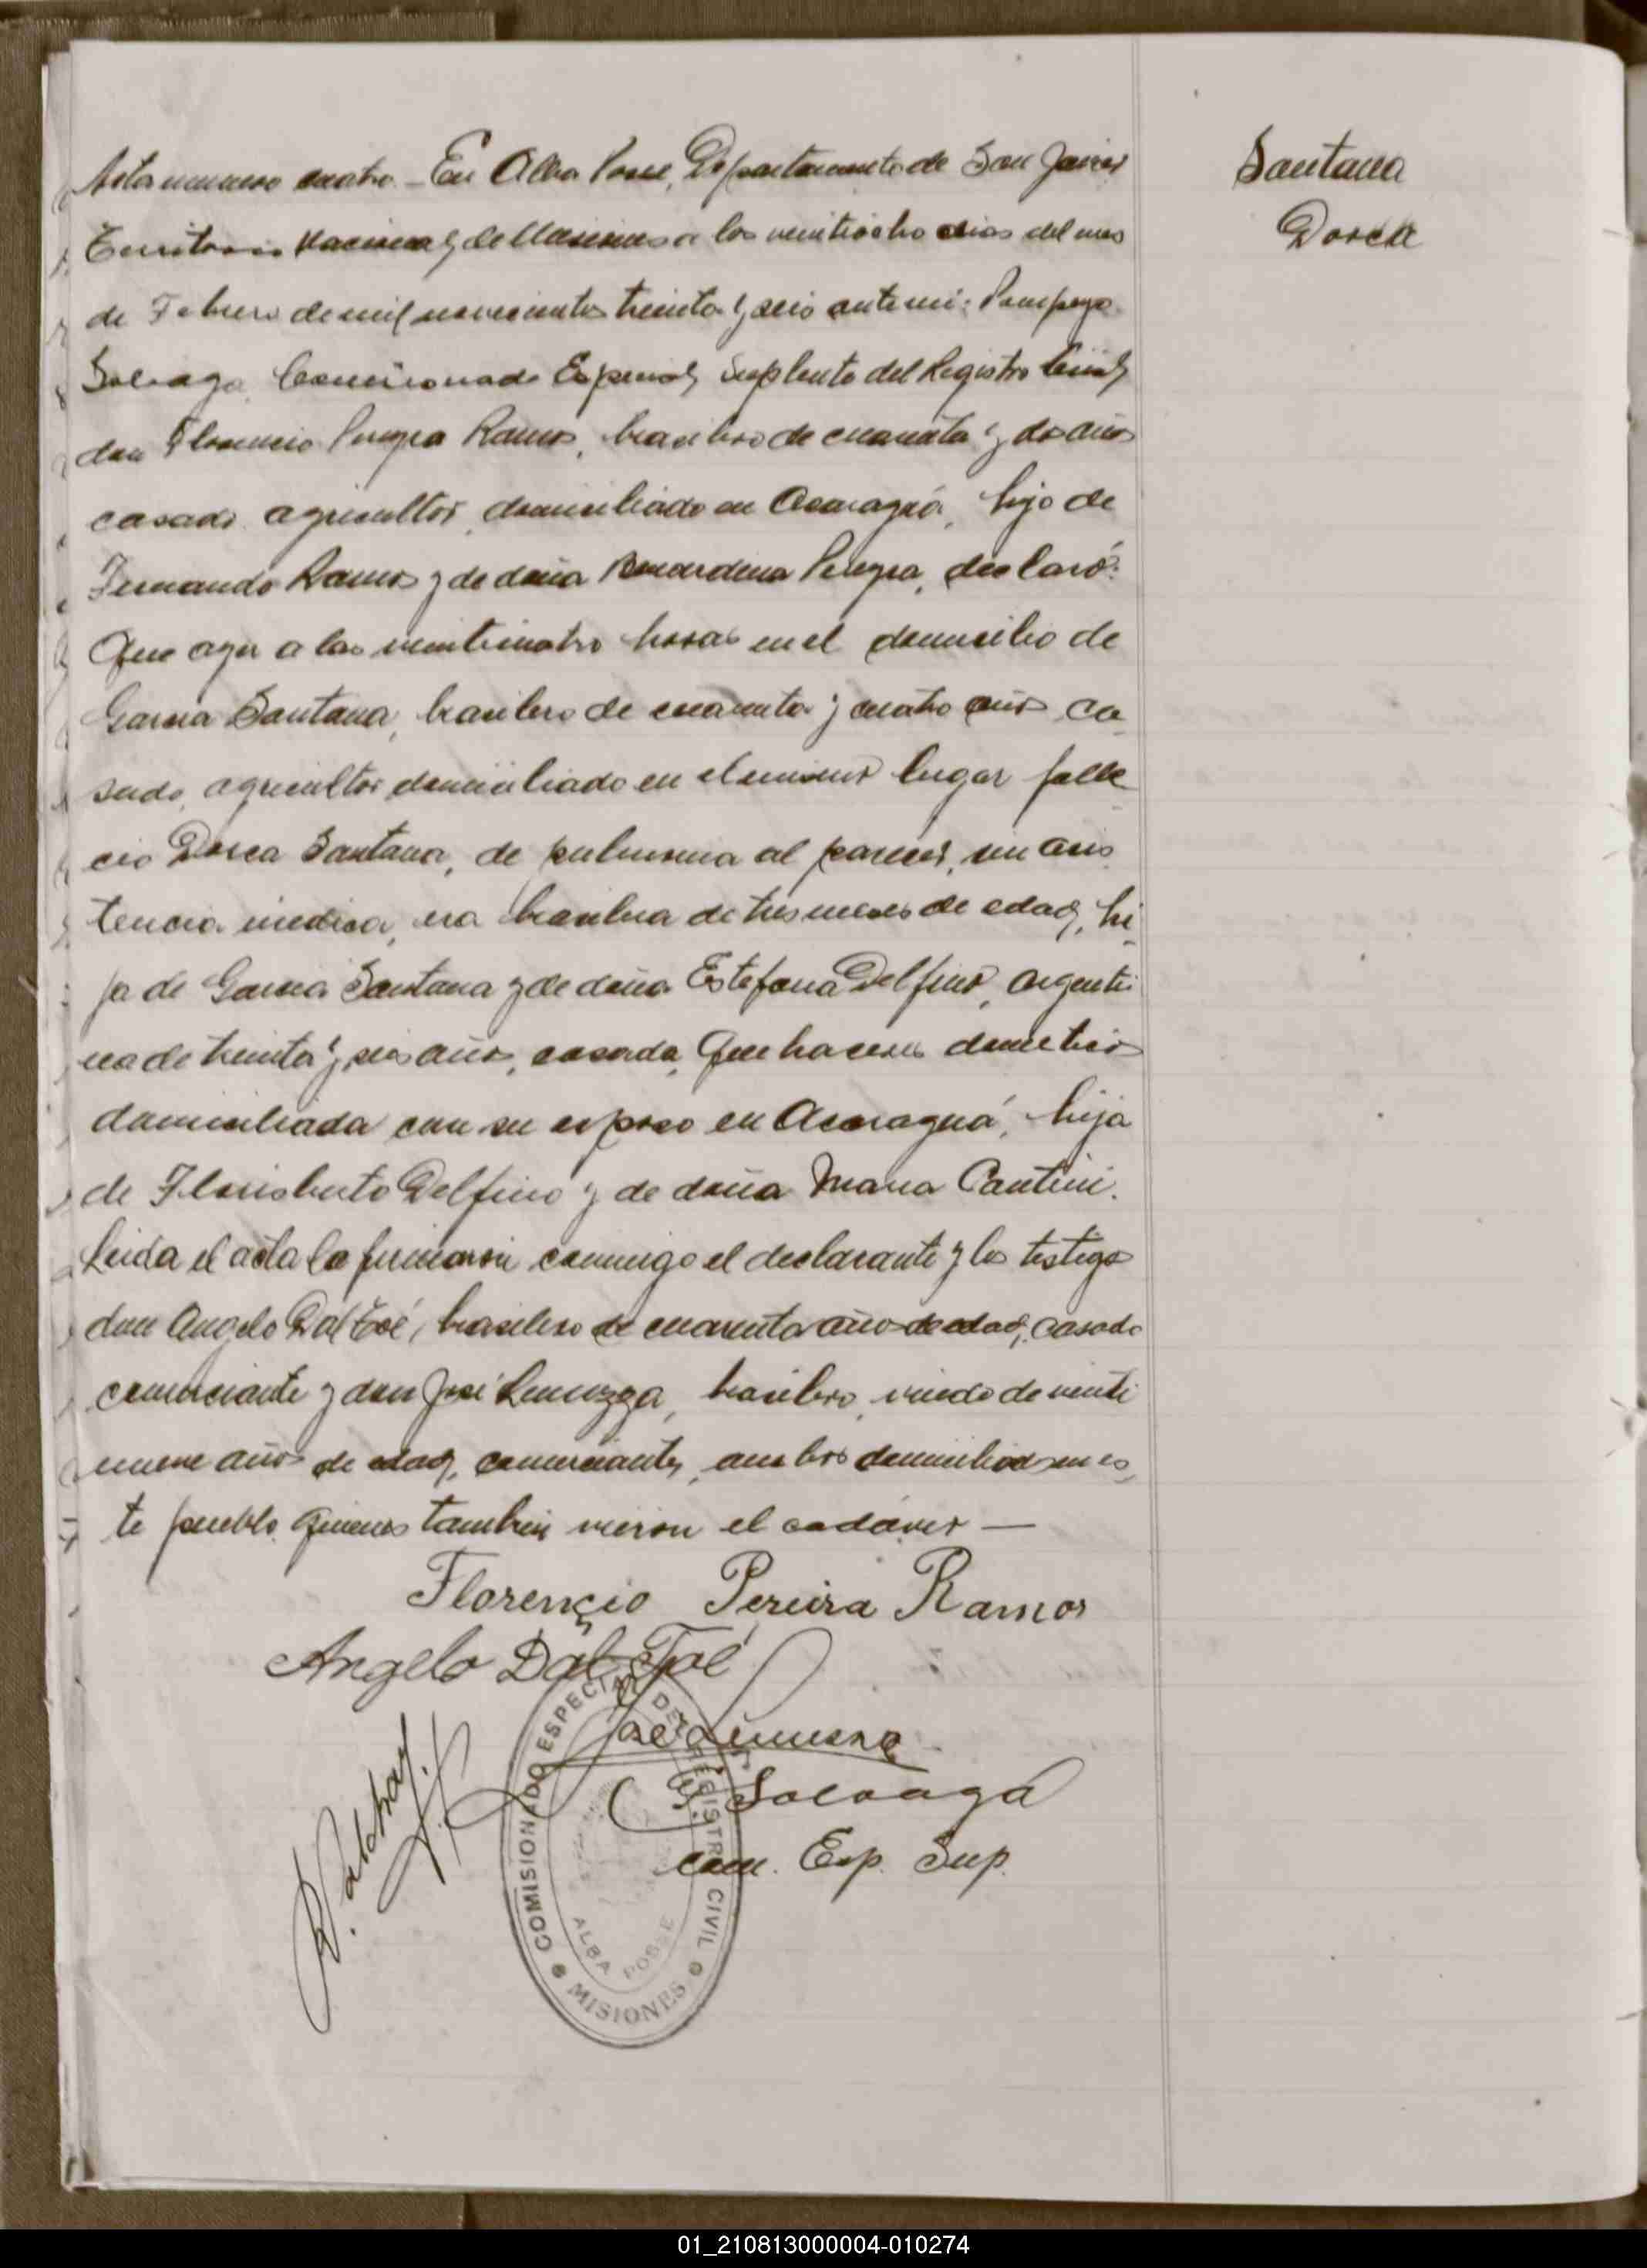 Acta numero cuatro – En Alba Posse, Departamento de San Javier
Santana
Dorca
Territorio Nacional de Misiones a los veintiocho dias del mes
de Febrero de mil novecientos treinta y seis ante mi: Pompeyo
Soloaga, Comisionado Especial Suplente del Registro Civil
don Florencio Pereyra Ramos, brasilero de cuarenta y dos años
casado agricultor, domiciliado en Acaraguá, hijo de
Fernando Ramos y de doña Bernardina Pereyra, declaró:
Que ayer a las veinticuatro horas en el domicilio de
Garcia Santana, brasilero de cuarenta y cuatro años ca-
sado, agricultor domiciliado en el mismo lugar falle
cio Dorca Santana, de pulmonia al parecer, sin asis
tencia medica, era brasilera de tres meses de edad, hi-
ja de Garcia Santana y de doña Estefana Delfino, argenti
na de treinta y seis años, casada, Quehaceres domesticos
domiciliada con su esposo en Acaraguá, hija
de Florisberto Delfino y de doña Maria Cantini.
Leida el acta la firmaron conmigo el declarante y los testigos
don Angelo Dal Toé, brasilero de cuarenta años de edad, casado
comerciante y don José, brasilero, viudo de veinti
nueve años de edad, comerciante, ambos domiciliados en es-
te pueblo Quienes tambien vieron el cadaver —
Florençio Pereira Ramos
Angelo Dal Toé
José
P. Soloaga
com. Esp. Sup.
COMISIONADO ESPECIAL DEL REGISTRO CIVIL
ALBA POSSE
MISIONES
01_210813000004-010274